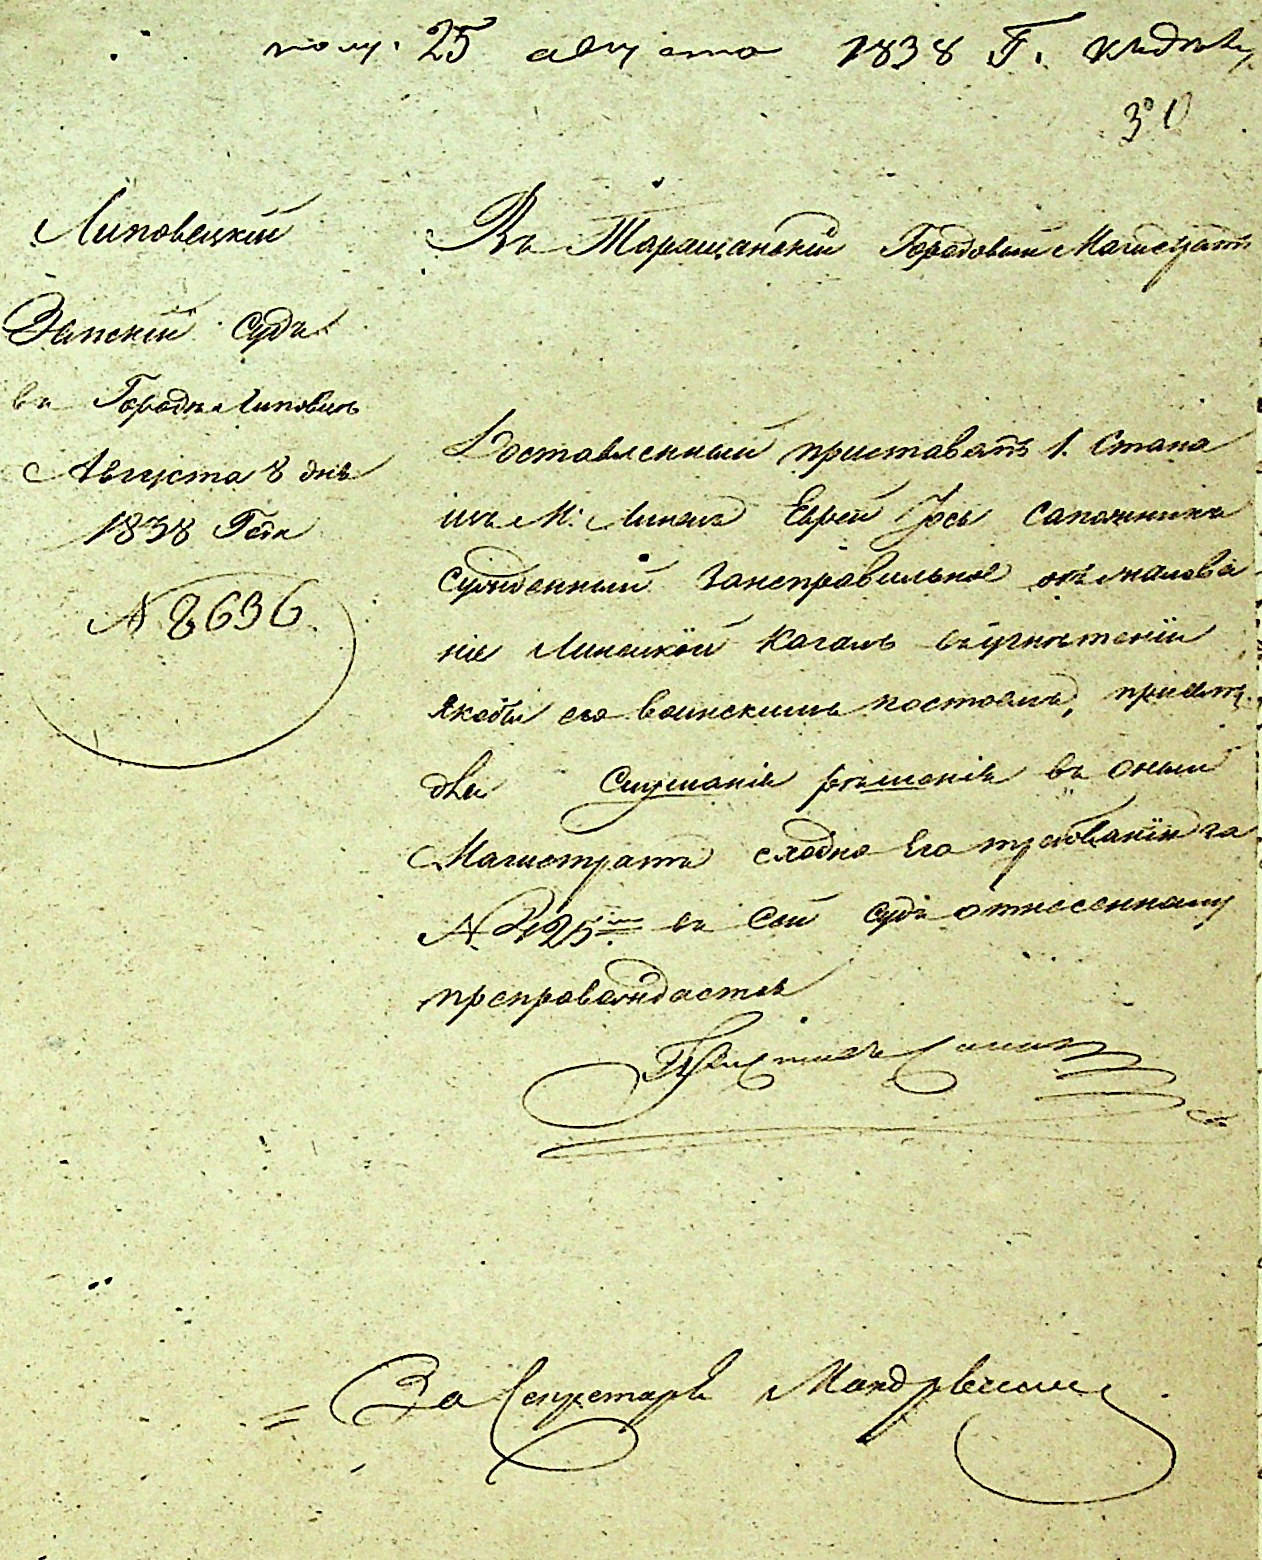 полу. 25 августа 1838 Г.
30
Липовецкій
Земскій Судъ
въ Городѣ Липовцѣ
Августа 8 дня
1838 Года
№ 8636
Въ Таращанскій Городовый Магистратъ
Доставленный приставомъ 1. Стана
изъ М: Линецъ Еврей Іось Сапожникъ
сужденный за неправильное обжалова
ніе Линецкой Кагалъ въ угнѣтеніи
якобы его воинскимъ постоемъ,
для Слушанія рѣшенія въ оный
Магистратъ сходно Его требованію за
№ 425 въ Сей Судъ отнесенному
препровождается
За Секретаря